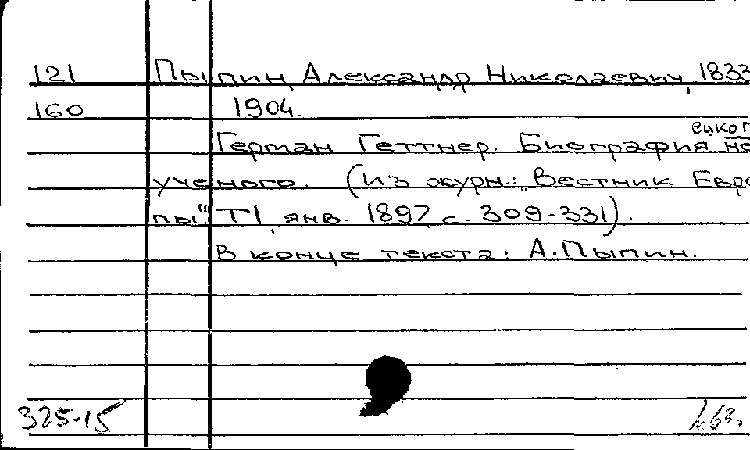 121 Пыпин, Александр Николаевич, 1833
160 1904.
Герман Геттнер. Биография не
ецког
ученого. (Из журн.: "Вестник Евро
пы" Т I, янв. 1897, с. 309-331).
В конце текста: А. Пыпин.
325-15